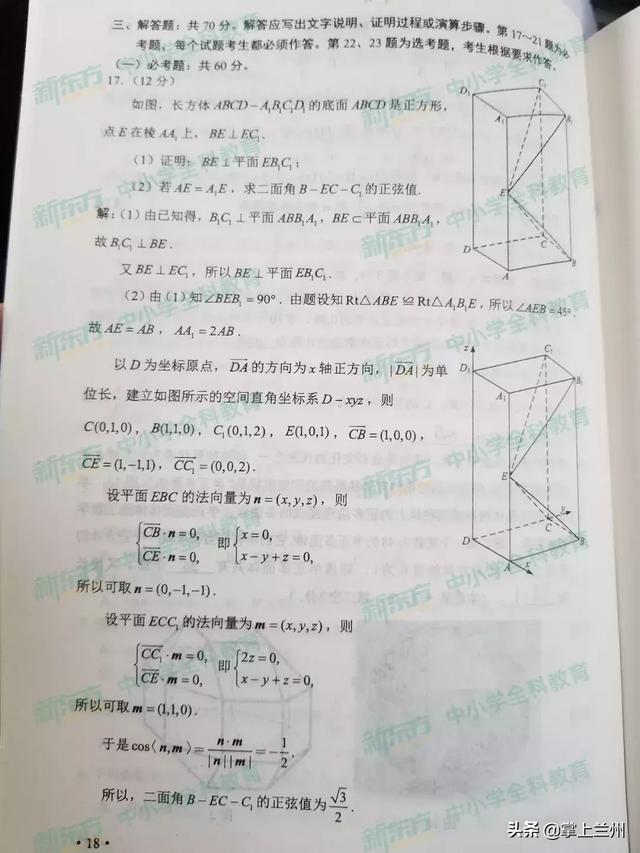 三、解答题：共 70 分。解答应写出文字说明、证明过程或演算步骤。第 17～21 题为必
考题，每个试题考生都必须作答。第 22、23 题为选考题，考生根据要求作答。
（一）必考题：共 60 分。
17.（12 分）
如图，长方体 ABCD－A₁B₁C₁D₁ 的底面 ABCD 是正方形，
点 E 在棱 AA₁ 上， BE⊥EC₁．
（1）证明： BE⊥平面 EB₁C₁；
（2）若 AE＝A₁E ，求二面角 B－EC－C₁ 的正弦值.
解：（1）由已知得，B₁C₁⊥平面 ABB₁A₁，BE⊂平面 ABB₁A₁，
故 B₁C₁⊥BE．
又 BE⊥EC₁，所以 BE⊥平面 EB₁C₁．
（2）由（1）知∠BEB₁＝90°．由题设知 Rt△ABE≌Rt△A₁B₁E，所以∠AEB＝45°，
故 AE＝AB， AA₁＝2AB．
以 D 为坐标原点， DA 的方向为 x 轴正方向，|DA| 为单
位长，建立如图所示的空间直角坐标系 D－xyz，则
C(0,1,0)， B(1,1,0)， C₁(0,1,2)， E(1,0,1)， CB＝(1,0,0)，
CE＝(1,-1,1)， CC₁＝(0,0,2)．
设平面 EBC 的法向量为 n＝(x,y,z)，则
CB·n＝0, 即 x＝0,
CE·n＝0, x－y＋z＝0,
所以可取 n＝(0,-1,-1)．
设平面 ECC₁ 的法向量为 m＝(x,y,z)，则
CC₁·m＝0, 即 2z＝0,
CE·m＝0, x－y＋z＝0,
所以可取 m＝(1,1,0)．
于是 cos⟨n,m⟩＝n·m/|n||m|＝-1/2．
所以，二面角 B－EC－C₁ 的正弦值为 √3/2．
·18·
D₁ C₁
A₁ B₁
E
D C
A B
z
D₁ C₁
A₁ B₁
E
y
D C
A B
x
新东方 中小学全科教育
头条 @掌上兰州